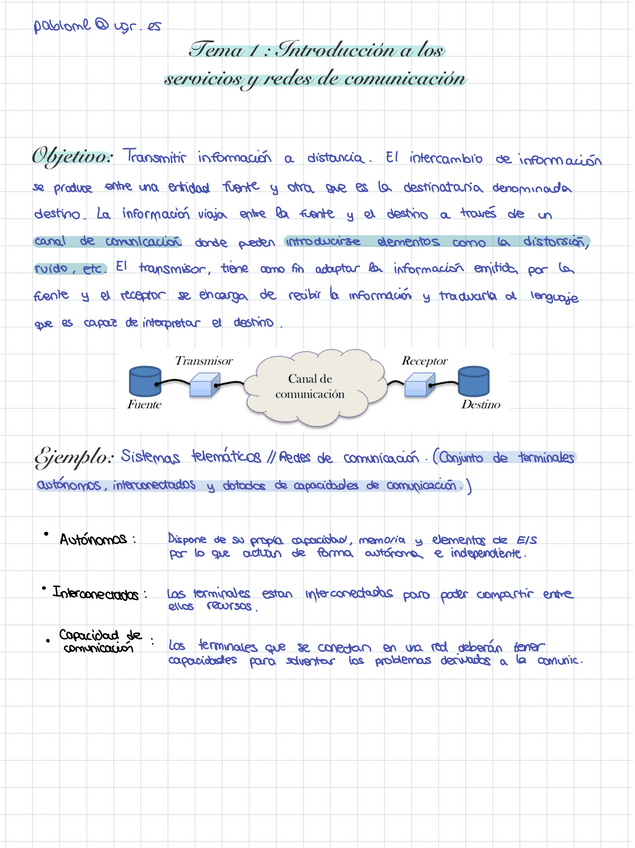 pabloml@ugr.es
Tema 1: Introducción a los
servicios y redes de comunicación
Objetivo: Transmitir información a distancia. El intercambio de información
se produce entre una entidad fuente y otra que es la destinataria denominada
destino. La información viaja entre la fuente y el destino a través de un
canal de comunicación donde pueden introducirse elementos como la distorsión,
ruido, etc. El transmisor, tiene como fin adaptar la información emitida por la
fuente y el receptor se encarga de recibir la información y traducirla al lenguaje
que es capaz de interpretar el destino.
Transmisor
Receptor
Canal de
comunicación
Fuente
Destino
Ejemplo: Sistemas telemáticos // Redes de comunicación. (Conjunto de terminales
autónomos, interconectados y dotados de capacidades de comunicación.)
• Autónomos: Dispone de su propia capacidad, memoria y elementos de E/S
por lo que actúan de forma autónoma e independiente.
• Interconectados: Los terminales estan interconectados para poder compartir entre
ellos recursos.
• Capacidad de
comunicación: Los terminales que se conectan en una red deberán tener
capacidades para solventar los problemas derivados a la comunic.